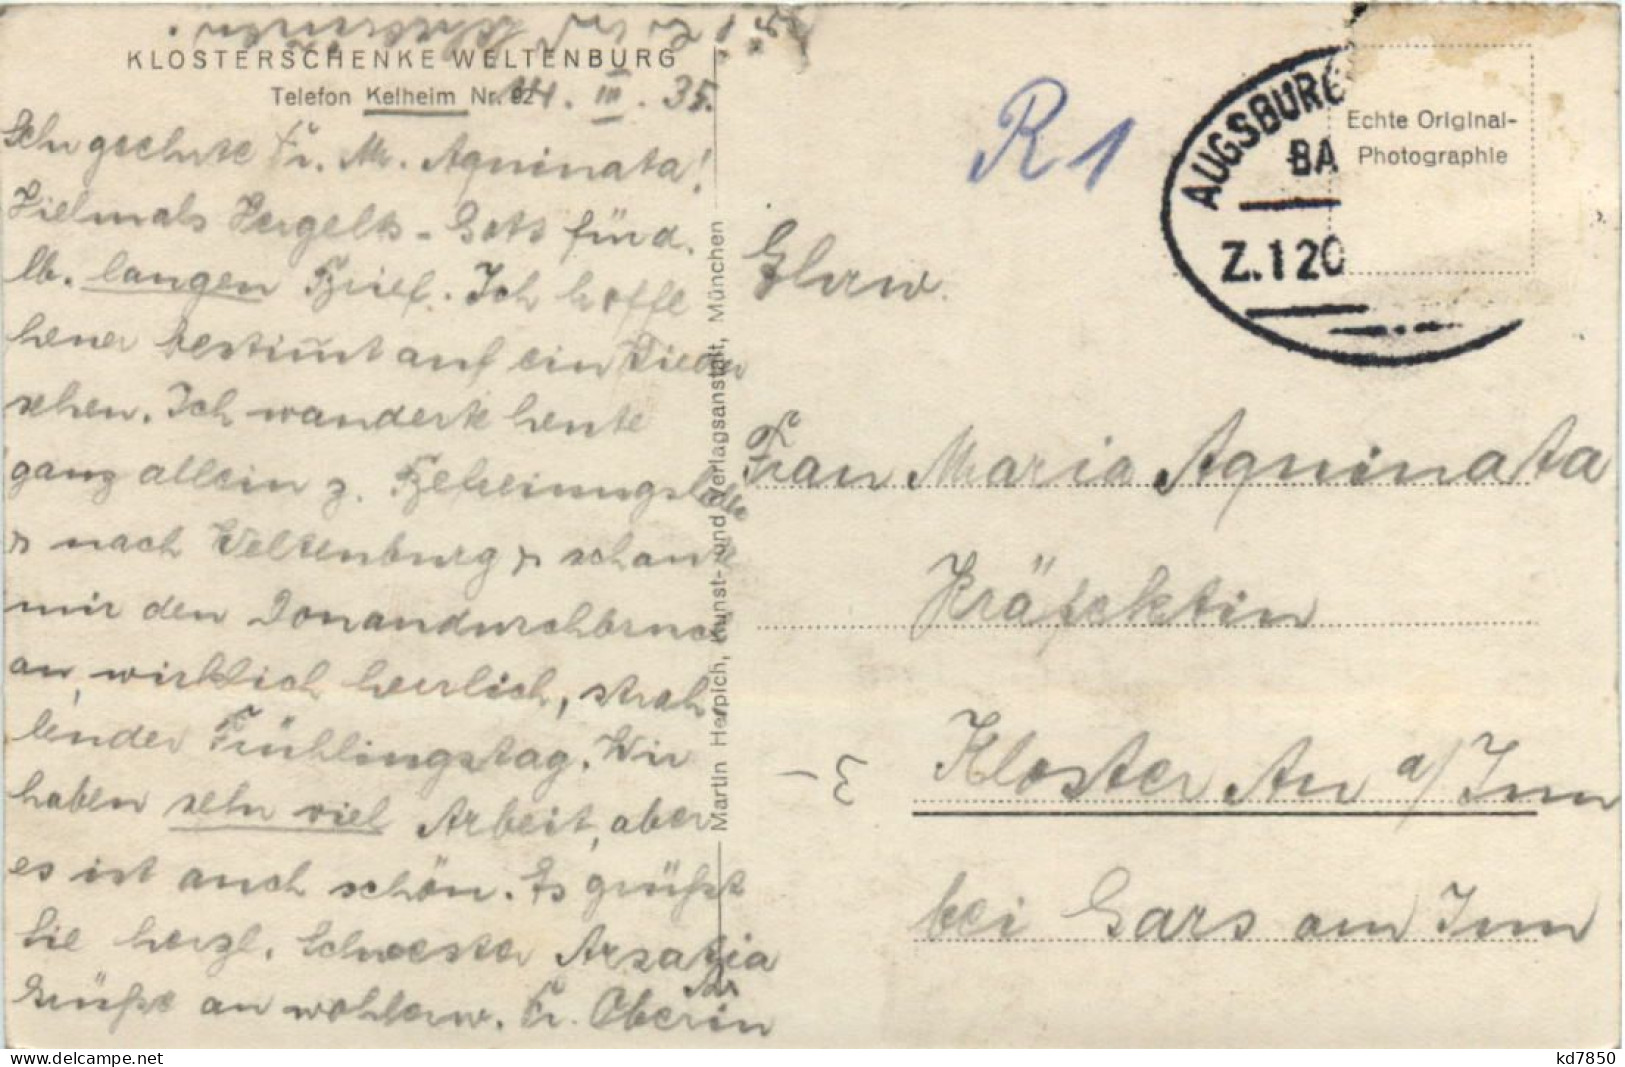 KLOSTERSCHENKE WELTENBURG
Telefon Kelheim Nr. 92
14. III. 35.
Sehr geehrte Fr. M. Aquinata!
Vielmals Vergelts-Gott für d.
lb. langen Brief. Ich hoffe
heuer bestimmt auf ein Wieder
sehen. Ich wanderte heute
ganz allein z. Befreiungshalle
u nach Weltenburg u schaute
mir den Donaudurchbruch
an, wirklich herrlich, strah-
lender Frühlingstag. Wir
haben sehr viel Arbeit, aber
es ist auch schön. Es grüßt
Sie herzl. Schwester
Grüße an wohlehrw. Fr. Oberin
Martin Herpich, Kunst- und Verlagsanstalt, München
R 1
AUGSBURG
BA
Z.120
Echte Original-
Photographie
Ehrw.
Frau Maria Aquinata
Präfektin
Kloster Au a/Inn
bei Gars am Inn
kd7850